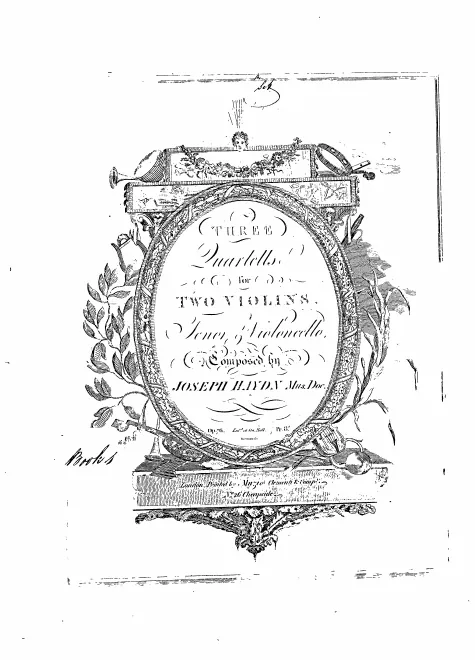 Set
THREE
Quartetts
for
TWO VIOLINS,
Tenor, & Violoncello,
Composed by
JOSEPH HAYDN Mus. Doc.
Op. 76. Ent.d at Sta. Hall. Pr. 8s
Books
London, Printed by Muzio Clementi & Comp.y
No. 26 Cheapside.